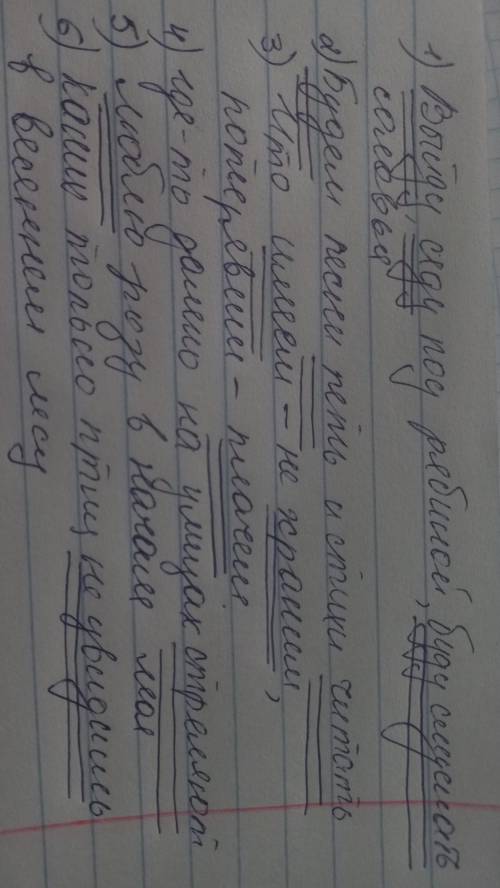 1) Выйду, сяду под рябиной, буду слушать
соловья
2) Будем песни петь и стихи читать
3) Что имеем - не храним,
потерявши - плачем
4) Где-то далеко на улицах стреляют
5) люблю грозу в начале мая
6) каких только птиц не увидишь
в весеннем лесу